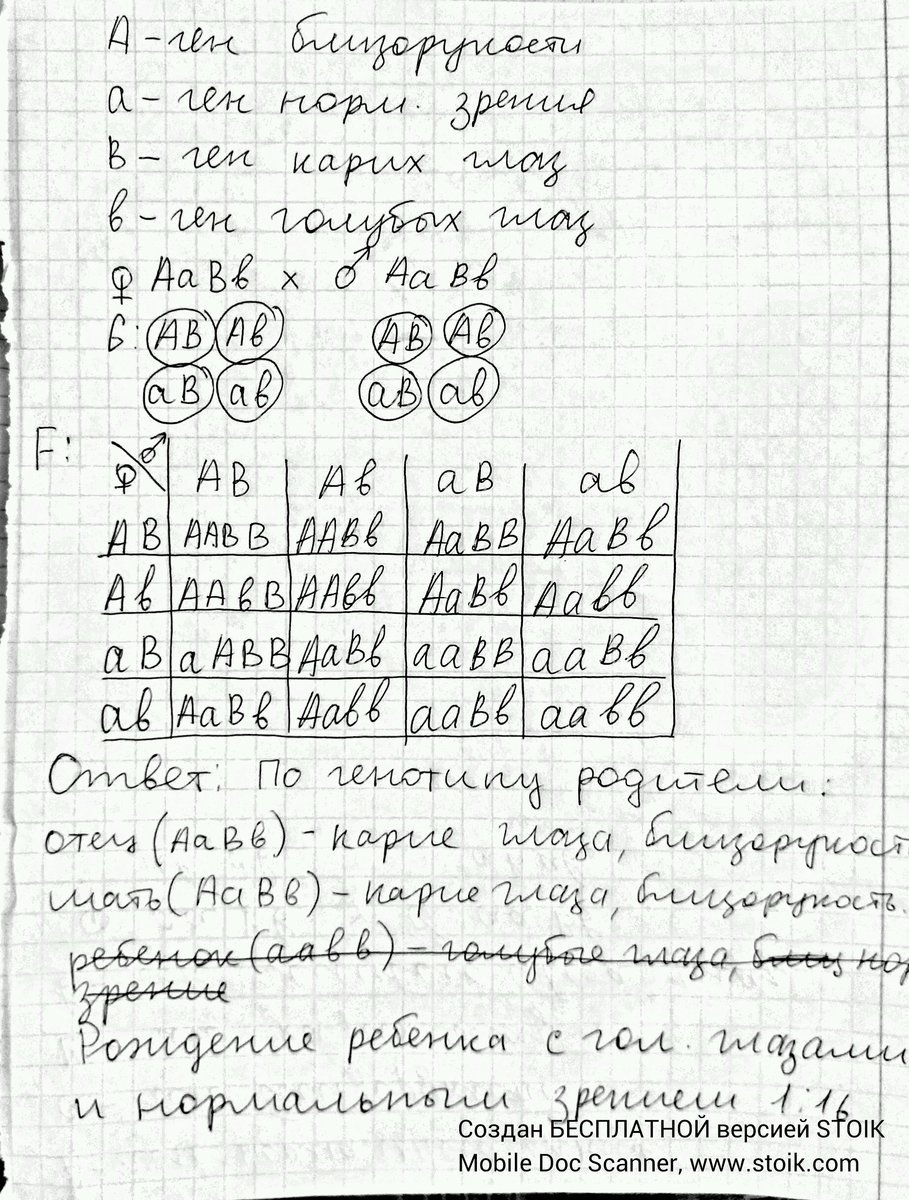 А – ген близорукости
а – ген норм. зрения
В – ген карих глаз
в – ген голубых глаз
♀ АаВв х ♂ АаВв
G: АВ Ав АВ Ав
аВ ав аВ ав
F: ♀ ♂ АВ Ав аВ ав
АВ ААВВ ААВв АаВВ АаВв
Ав ААвВ ААвв АаВв Аавв
аВ аАВВ АаВв ааВВ ааВв
ав АаВв Аавв ааВв аавв
Ответ: По генотипу родители:
отец (АаВв) – карие глаза, близорукост
мать (АаВв) – карие глаза, близорукость.
ребенок (аавв) – голубые глаза, близ нор
зрение
Рождение ребенка с гол. глазами
и нормальным зрением 1:16
Создан БЕСПЛАТНОЙ версией STOIK
Mobile Doc Scanner, www.stoik.com